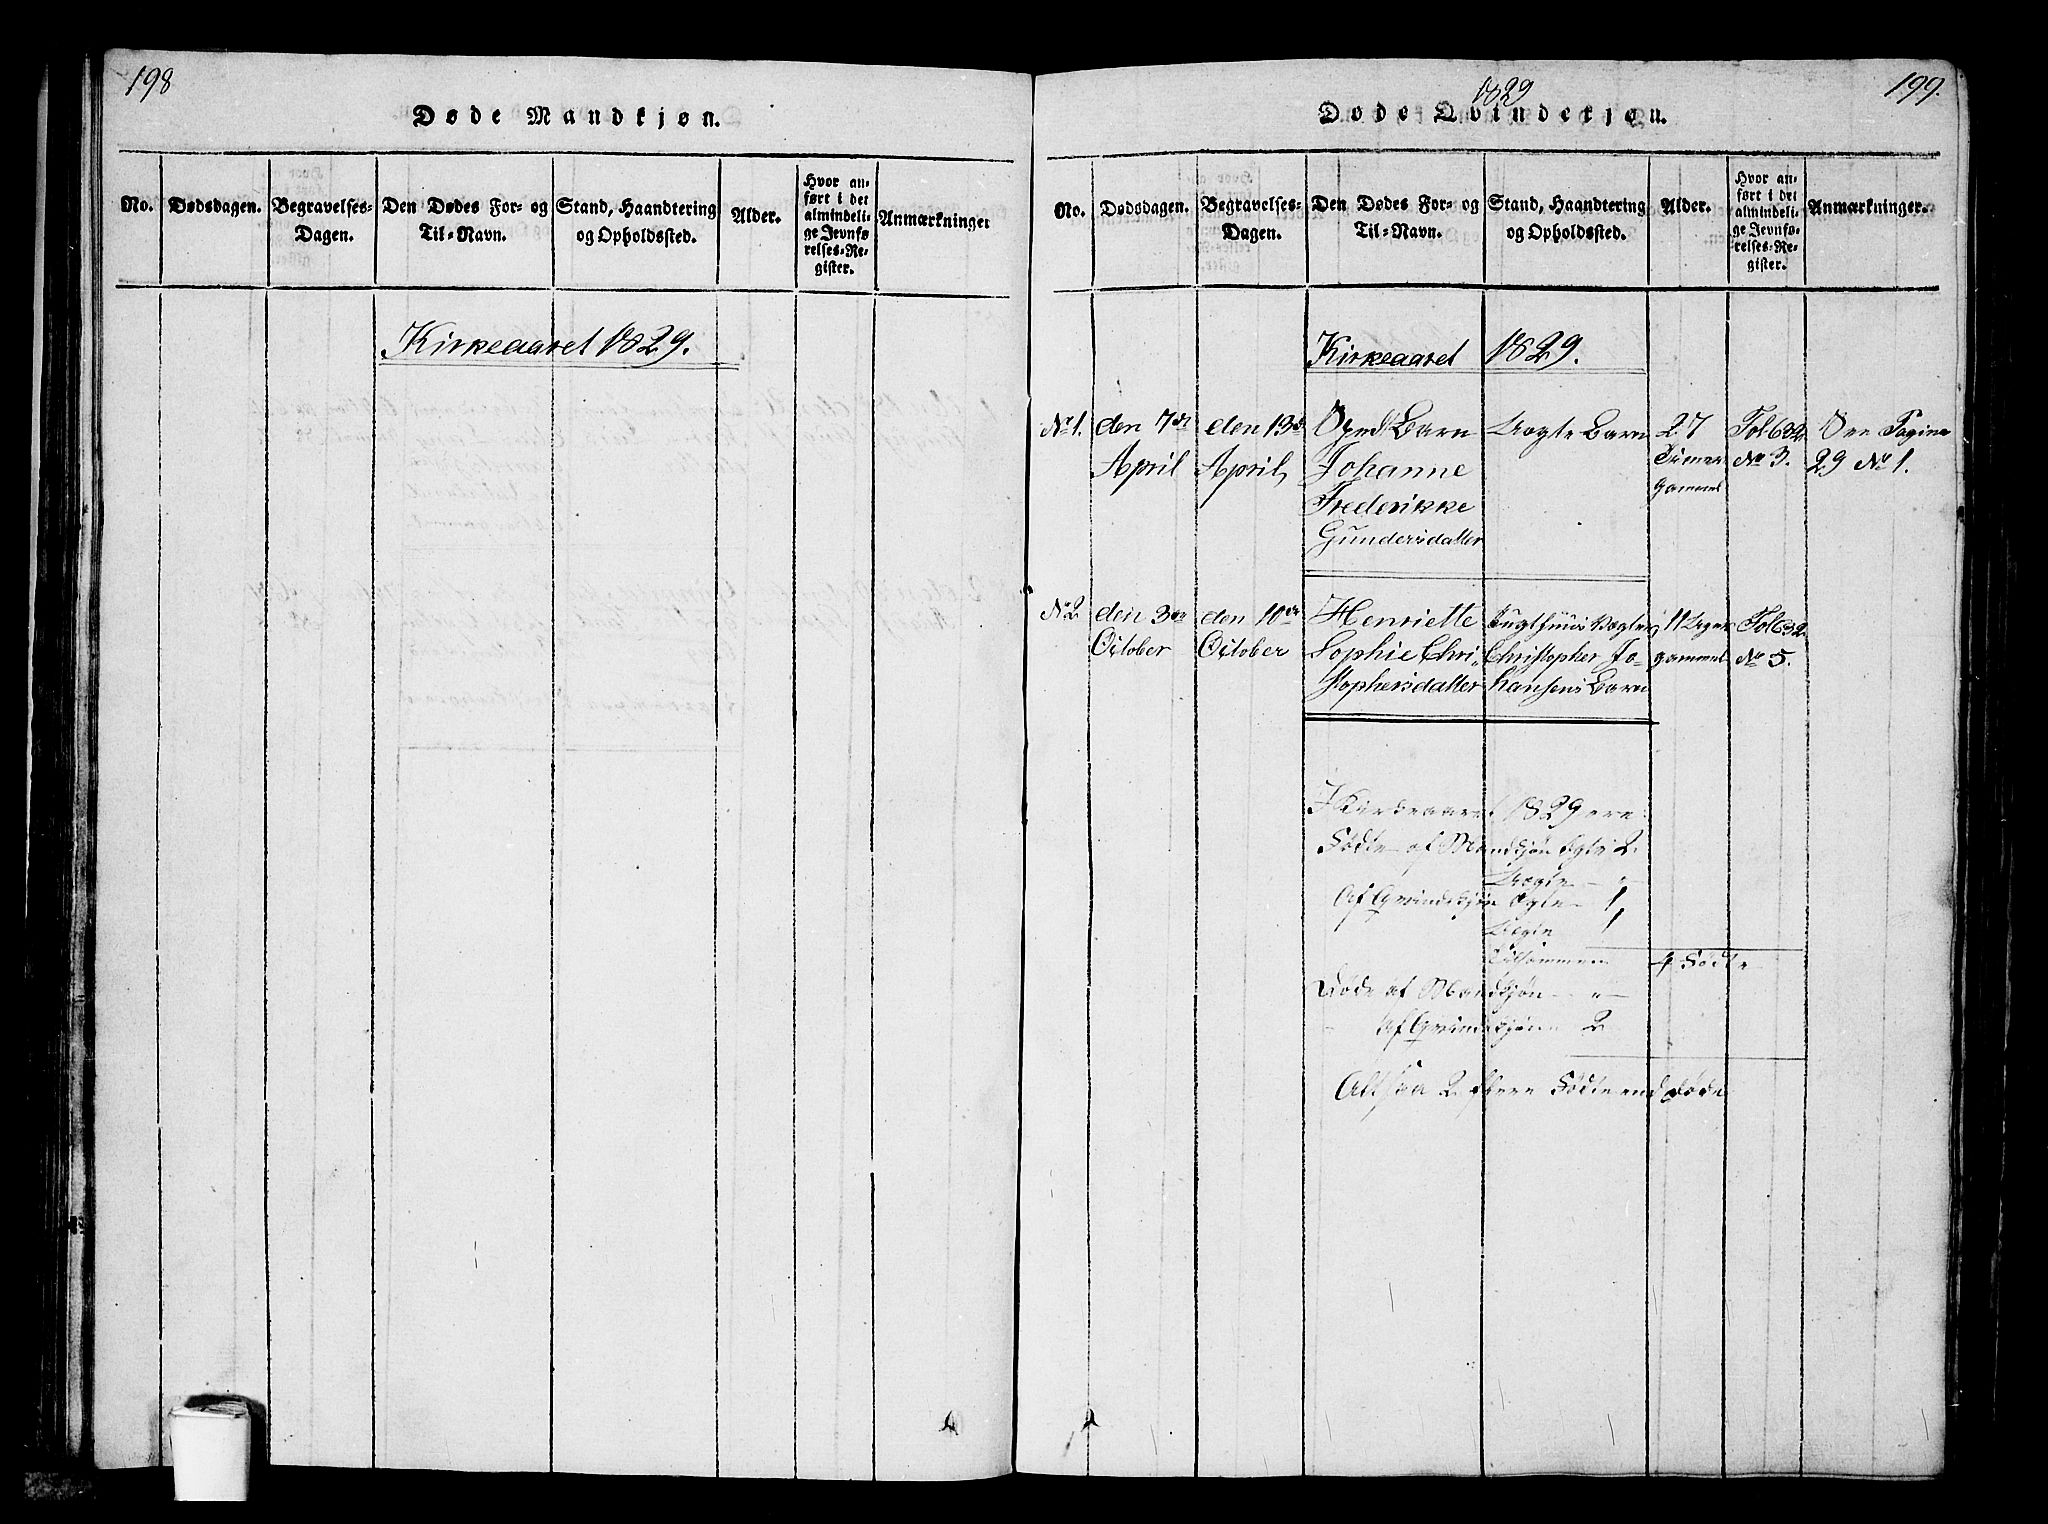 198
Døde Mandkjøn.
No.
Dødsdagen.
Begravelses-
Dagen.
Den Dødes For- og
Til-Navn.
Stand, Haandtering
og Opholdssted.
Alder.
Hvor an-
ført i det
almindeli-
ge Jevnfø-
relses-Re-
gister.
Anmærkninger
Kirkeaaret 1829.
1829
199.
Døde Qvindekjøn.
No.
Dødsdagen.
Begravelses-
Dagen.
Den Dødes For- og
Til-Navn.
Stand, Haandtering
og Opholdssted.
Alder.
Hvor an-
ført i det
almindeli-
ge Jevnfø-
relses-Re-
gister.
Anmærkninger.
Kirkeaaret 1829.
No 1.
den 7de
April
den 13de
April,
Barn
Johanne
Frederikke
Gundersdatter
Uægte Barn
27
Timer
gammel
Fol 632
No 3.
See Pagina
29 No 1.
No 2
den 3die
October
den 10de
October
Henriette
Sophie Chri-
stophersdatter
Tugthuus Vægter
Christopher Jo-
hansens Barn
11 Uger
gammel
Fol 632.
No 5.
I Kirkeaaret 1829 ere
Födte af Mandkjön Ægte 2
Uægte - "
Af Qvindekjön Ægte 1,
Uægte 1
Tilsammen 4 Födte
Döde af Mandkjön - "
Af Qvindekjön 2
Altsaa 2 flere Födte end Döde